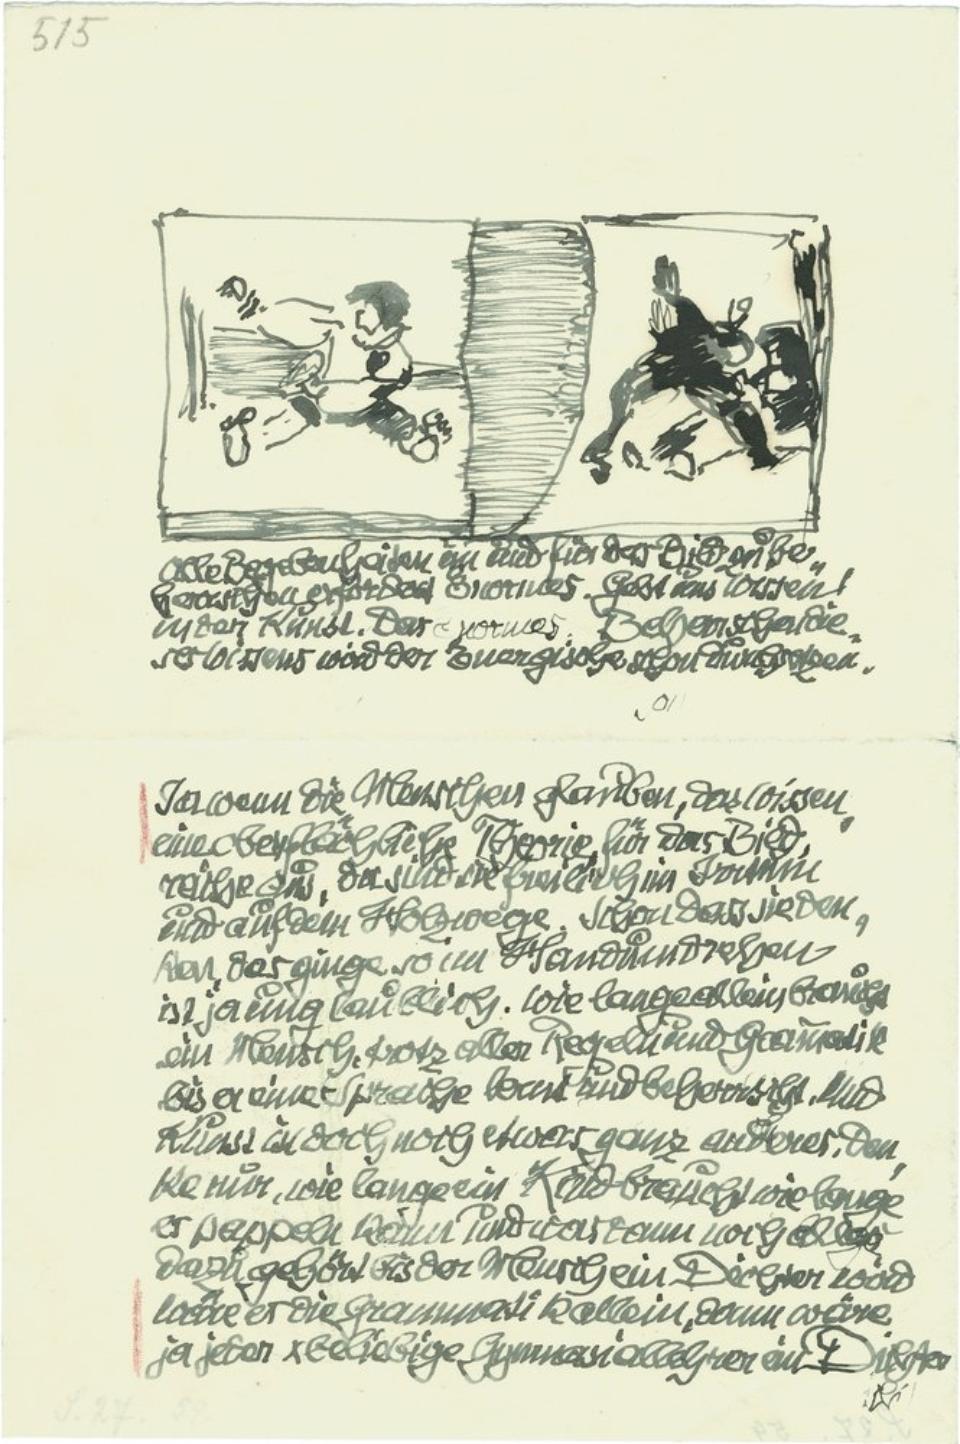 515
alle Begebenheiten im und für das Bild zu be„
herrschen erfordert Enormes. Gebt uns Wissen!
in der Kunst. Das enormes. Beherrschen die„
ses Wissens wird der Energische schon durchsetzen.
Ja wenn die Menschen glauben, das Wissen,
eine oberflächliche Theorie, für das Bild,
reiche aus, da sind sie freilich im Irrtum
und auf dem Holzwege. Schon dass sie den„
ken, das ginge so im Handumdrehen
ist ja unglaublich. Wie lange allein braucht
ein Mensch, trotz aller Regeln und Grammatik
bis er eine Sprache lernt und beherrscht. Und
Kunst ist doch noch etwas ganz anderes. Den„
ke nur, wie lange ein Kind braucht wie lange
er pappeln kann und was dann noch alles
dazu gehört bis der Mensch ein Dichter wird
wäre es die Grammatik allein, dann wäre
ja jeder x beliebige Gymnasiallehrer ein Dichter
S. 27. 59